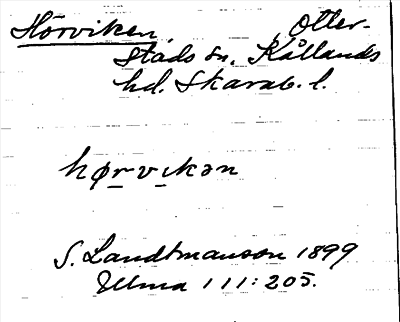 Hörviken, Otter-
stads sn, Kållands
hd. Skarab. l.
hørvikən
S. Landtmanson 1899
Ulma 111:205.